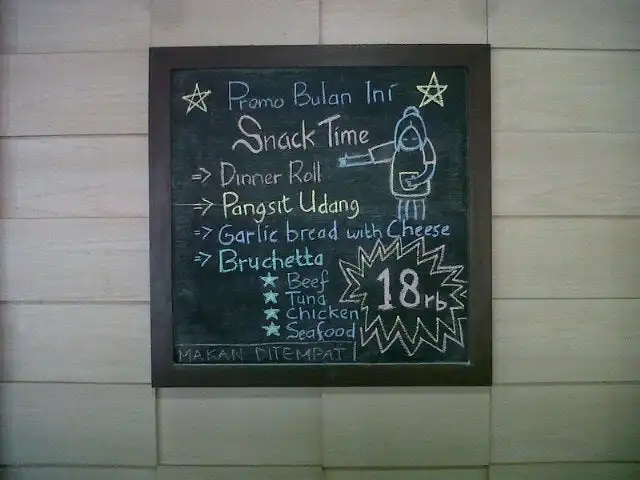 Promo Bulan Ini
Snack Time
=> Dinner Roll
=> Pangsit Udang
=> Garlic bread with Cheese
=> Bruchetta
★ Beef
★ Tuna
★ Chicken
★ Seafood
18rb
MAKAN DITEMPAT